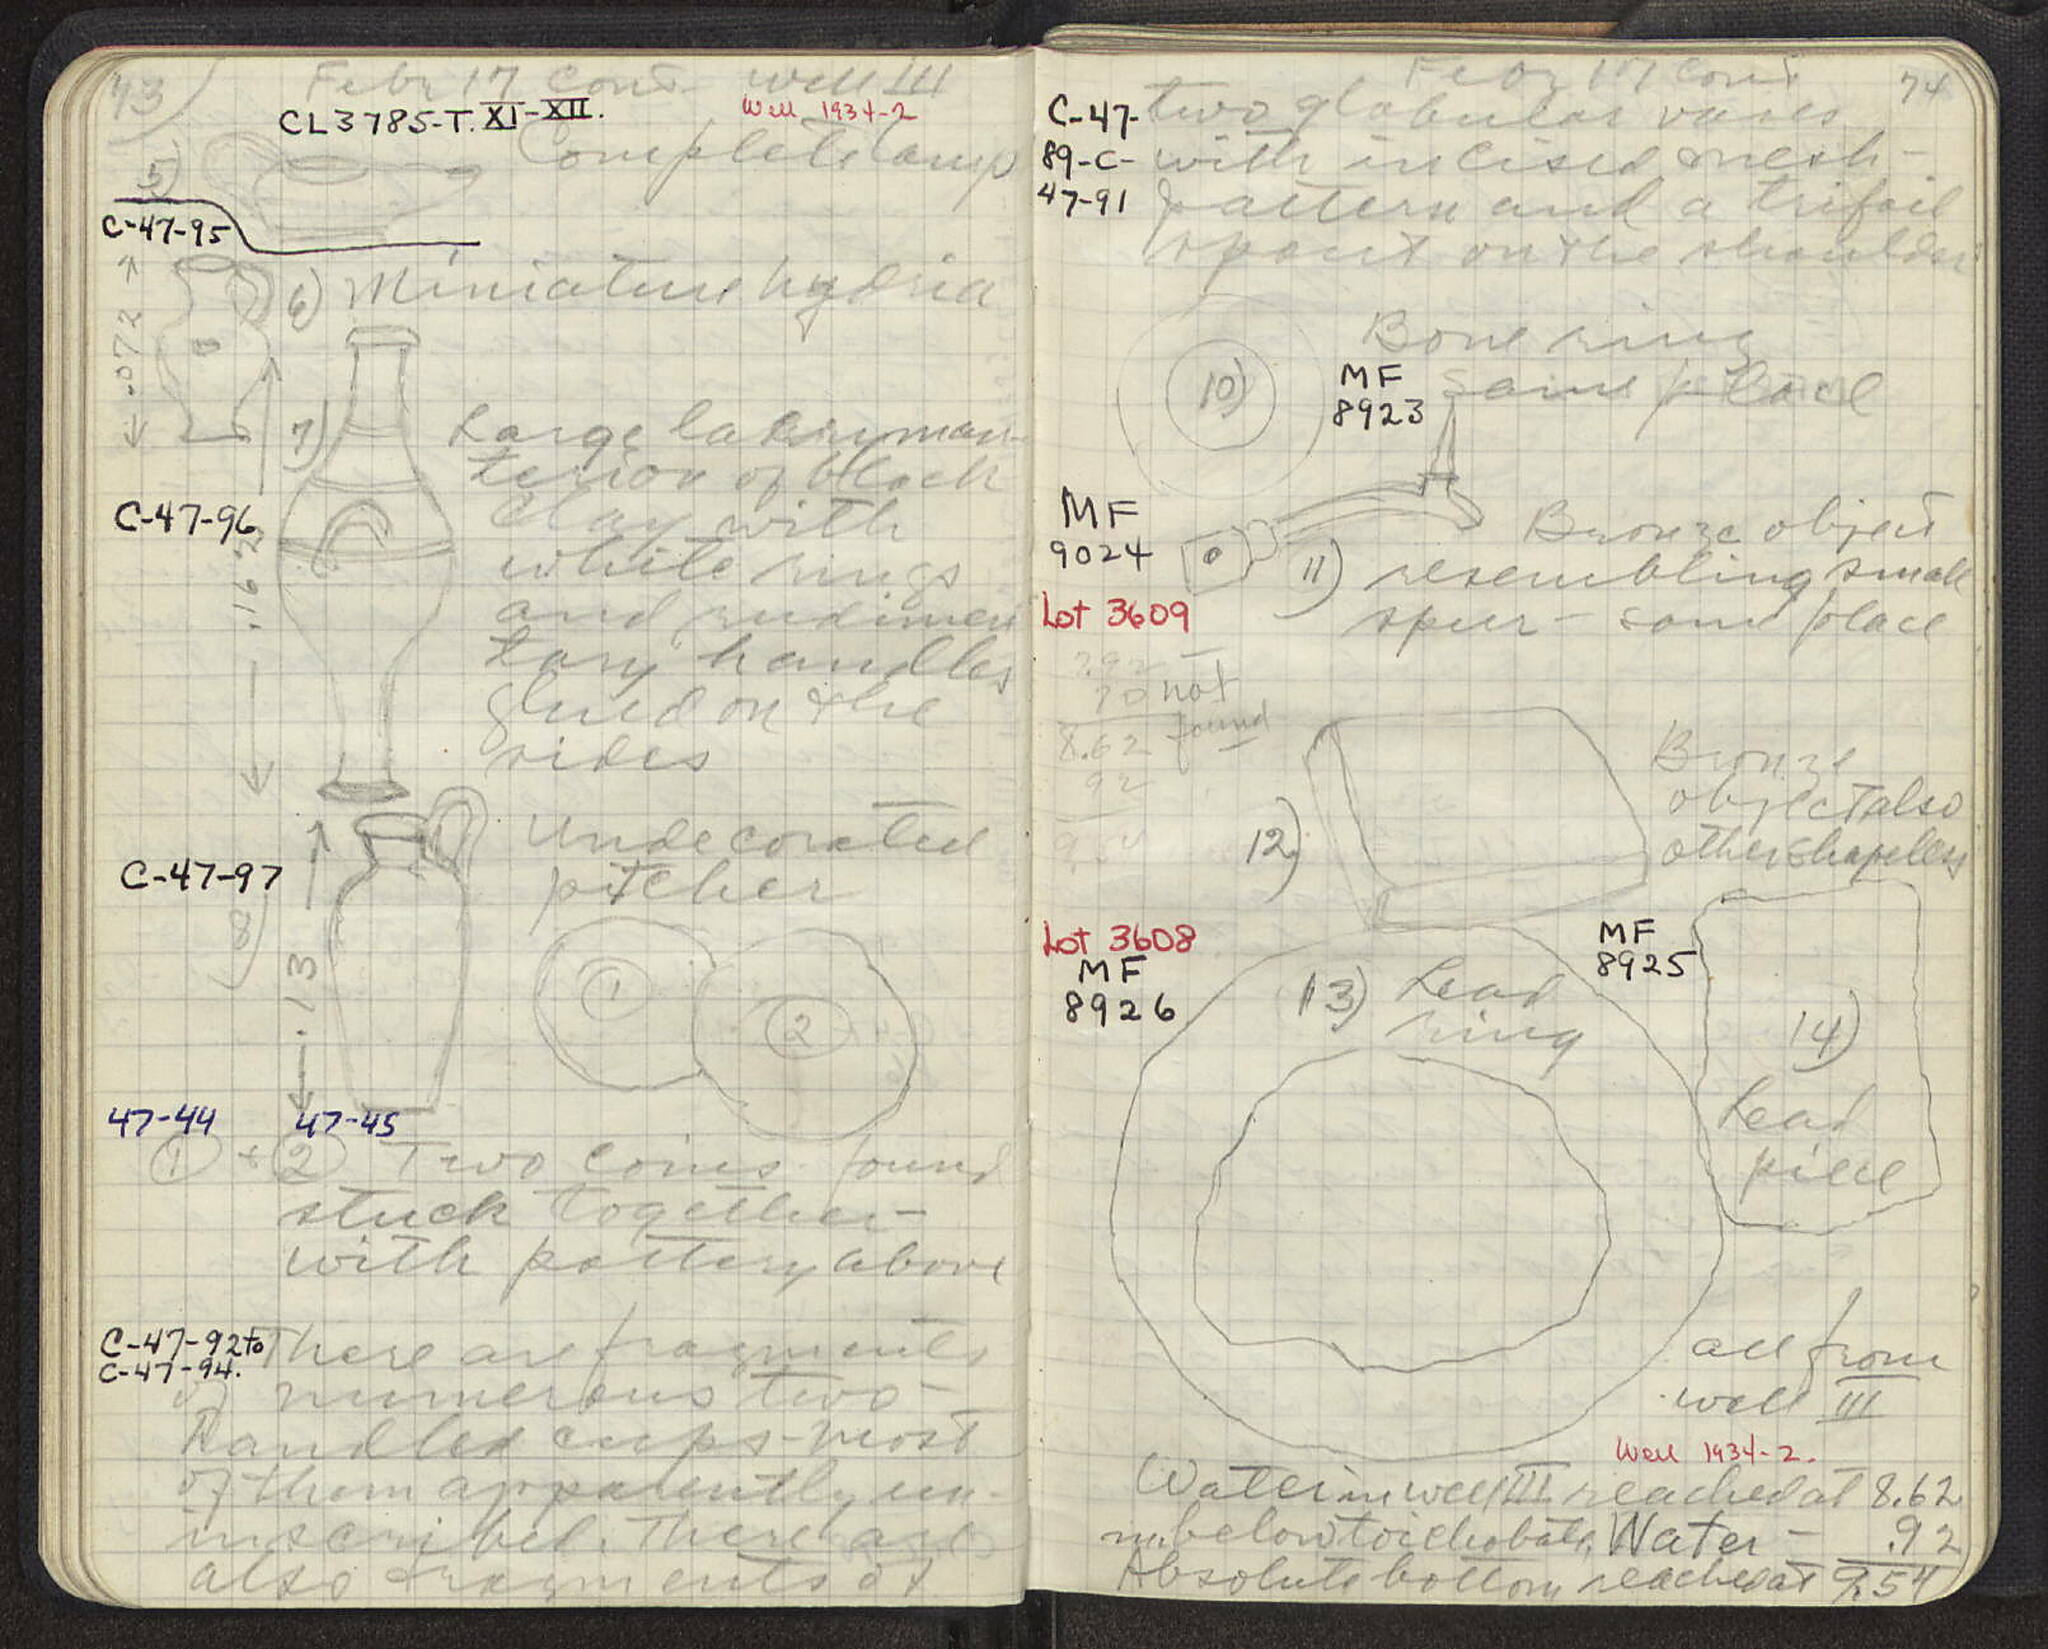 73)
Febr 17 cont. Well III
CL3785-T.XI-XII.
Well 1934-2
5)
Complete lamp
C-47-95
6) Miniature hydria
.072
7)
Large lakryman-
terion of black
clay with
white rings
and rudimen
tary handles
glued on the
sides
C-47-96
.162
Undecorated
pitcher
C-47-97
8)
.13
1
2
47-44 47-45
1 + 2 Two coins found
stuck together-
with pottery above
C-47-92 to
C-47-94.
There are fragments
of numerous two-
handled cups-most
of them apparently un-
inscribed. There are
also fragments of
Febr 17 cont
74
C-47-
89-C-
47-91
two globular vases
with incised mesh-
pattern and a trifoil
spout on the shoulder
Bone ring
10)
MF
8923
same place
MF
9024
11)
Bronze object
resembling small
spur- same place
Lot 3609
7.92
70
not
found
8.62
92
12)
Bronze
object also
other shapeless
Lot 3608
MF
8926
13) Lead
ring
MF
8925
14)
Lead
piece
all from
well III
Well 1934-2.
Water in well III reached at 8.62
m. below toichobate. Water - .92
Absolute bottom reached at 9.54